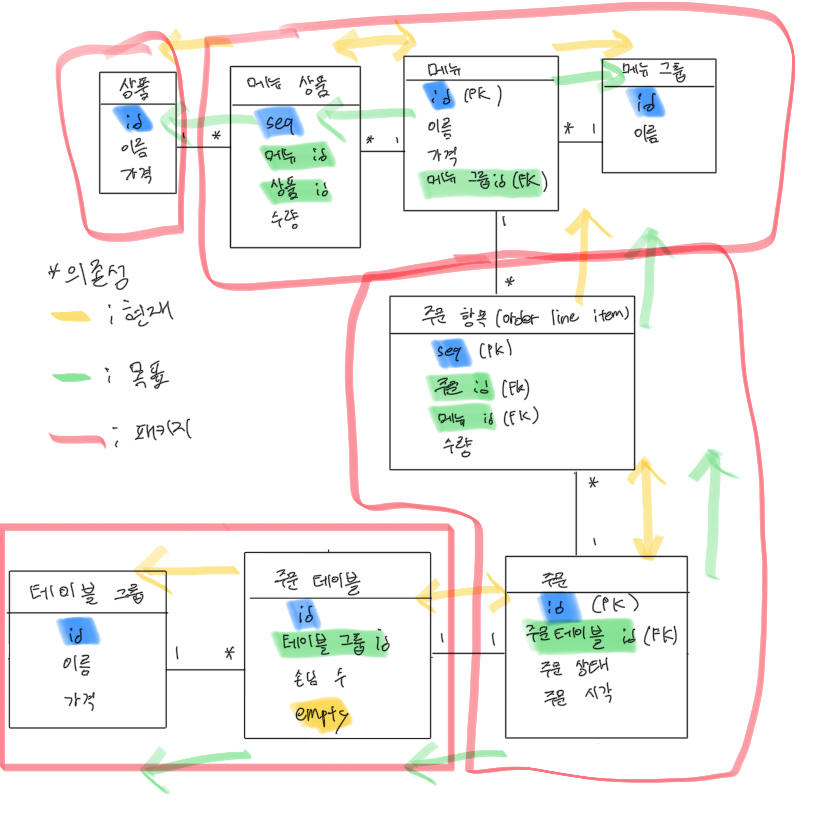 상품
id
이름
가격
메뉴 상품
seq
메뉴 id
상품 id
수량
메뉴
id (PK)
이름
가격
메뉴 그룹id (FK)
메뉴 그룹
id
이름
1
*
*
1
*
1
1
*
*의존성
; 현재
; 목표
; 패키지
주문 항목 (order line item)
seq (PK)
주문 id (FK)
메뉴 id (FK)
수량
*
1
테이블 그룹
id
이름
가격
1
*
주문 테이블
id
테이블 그룹 id
손님 수
empty
1
1
주문
id (PK)
주문테이블 id (FK)
주문 상태
주문 시각